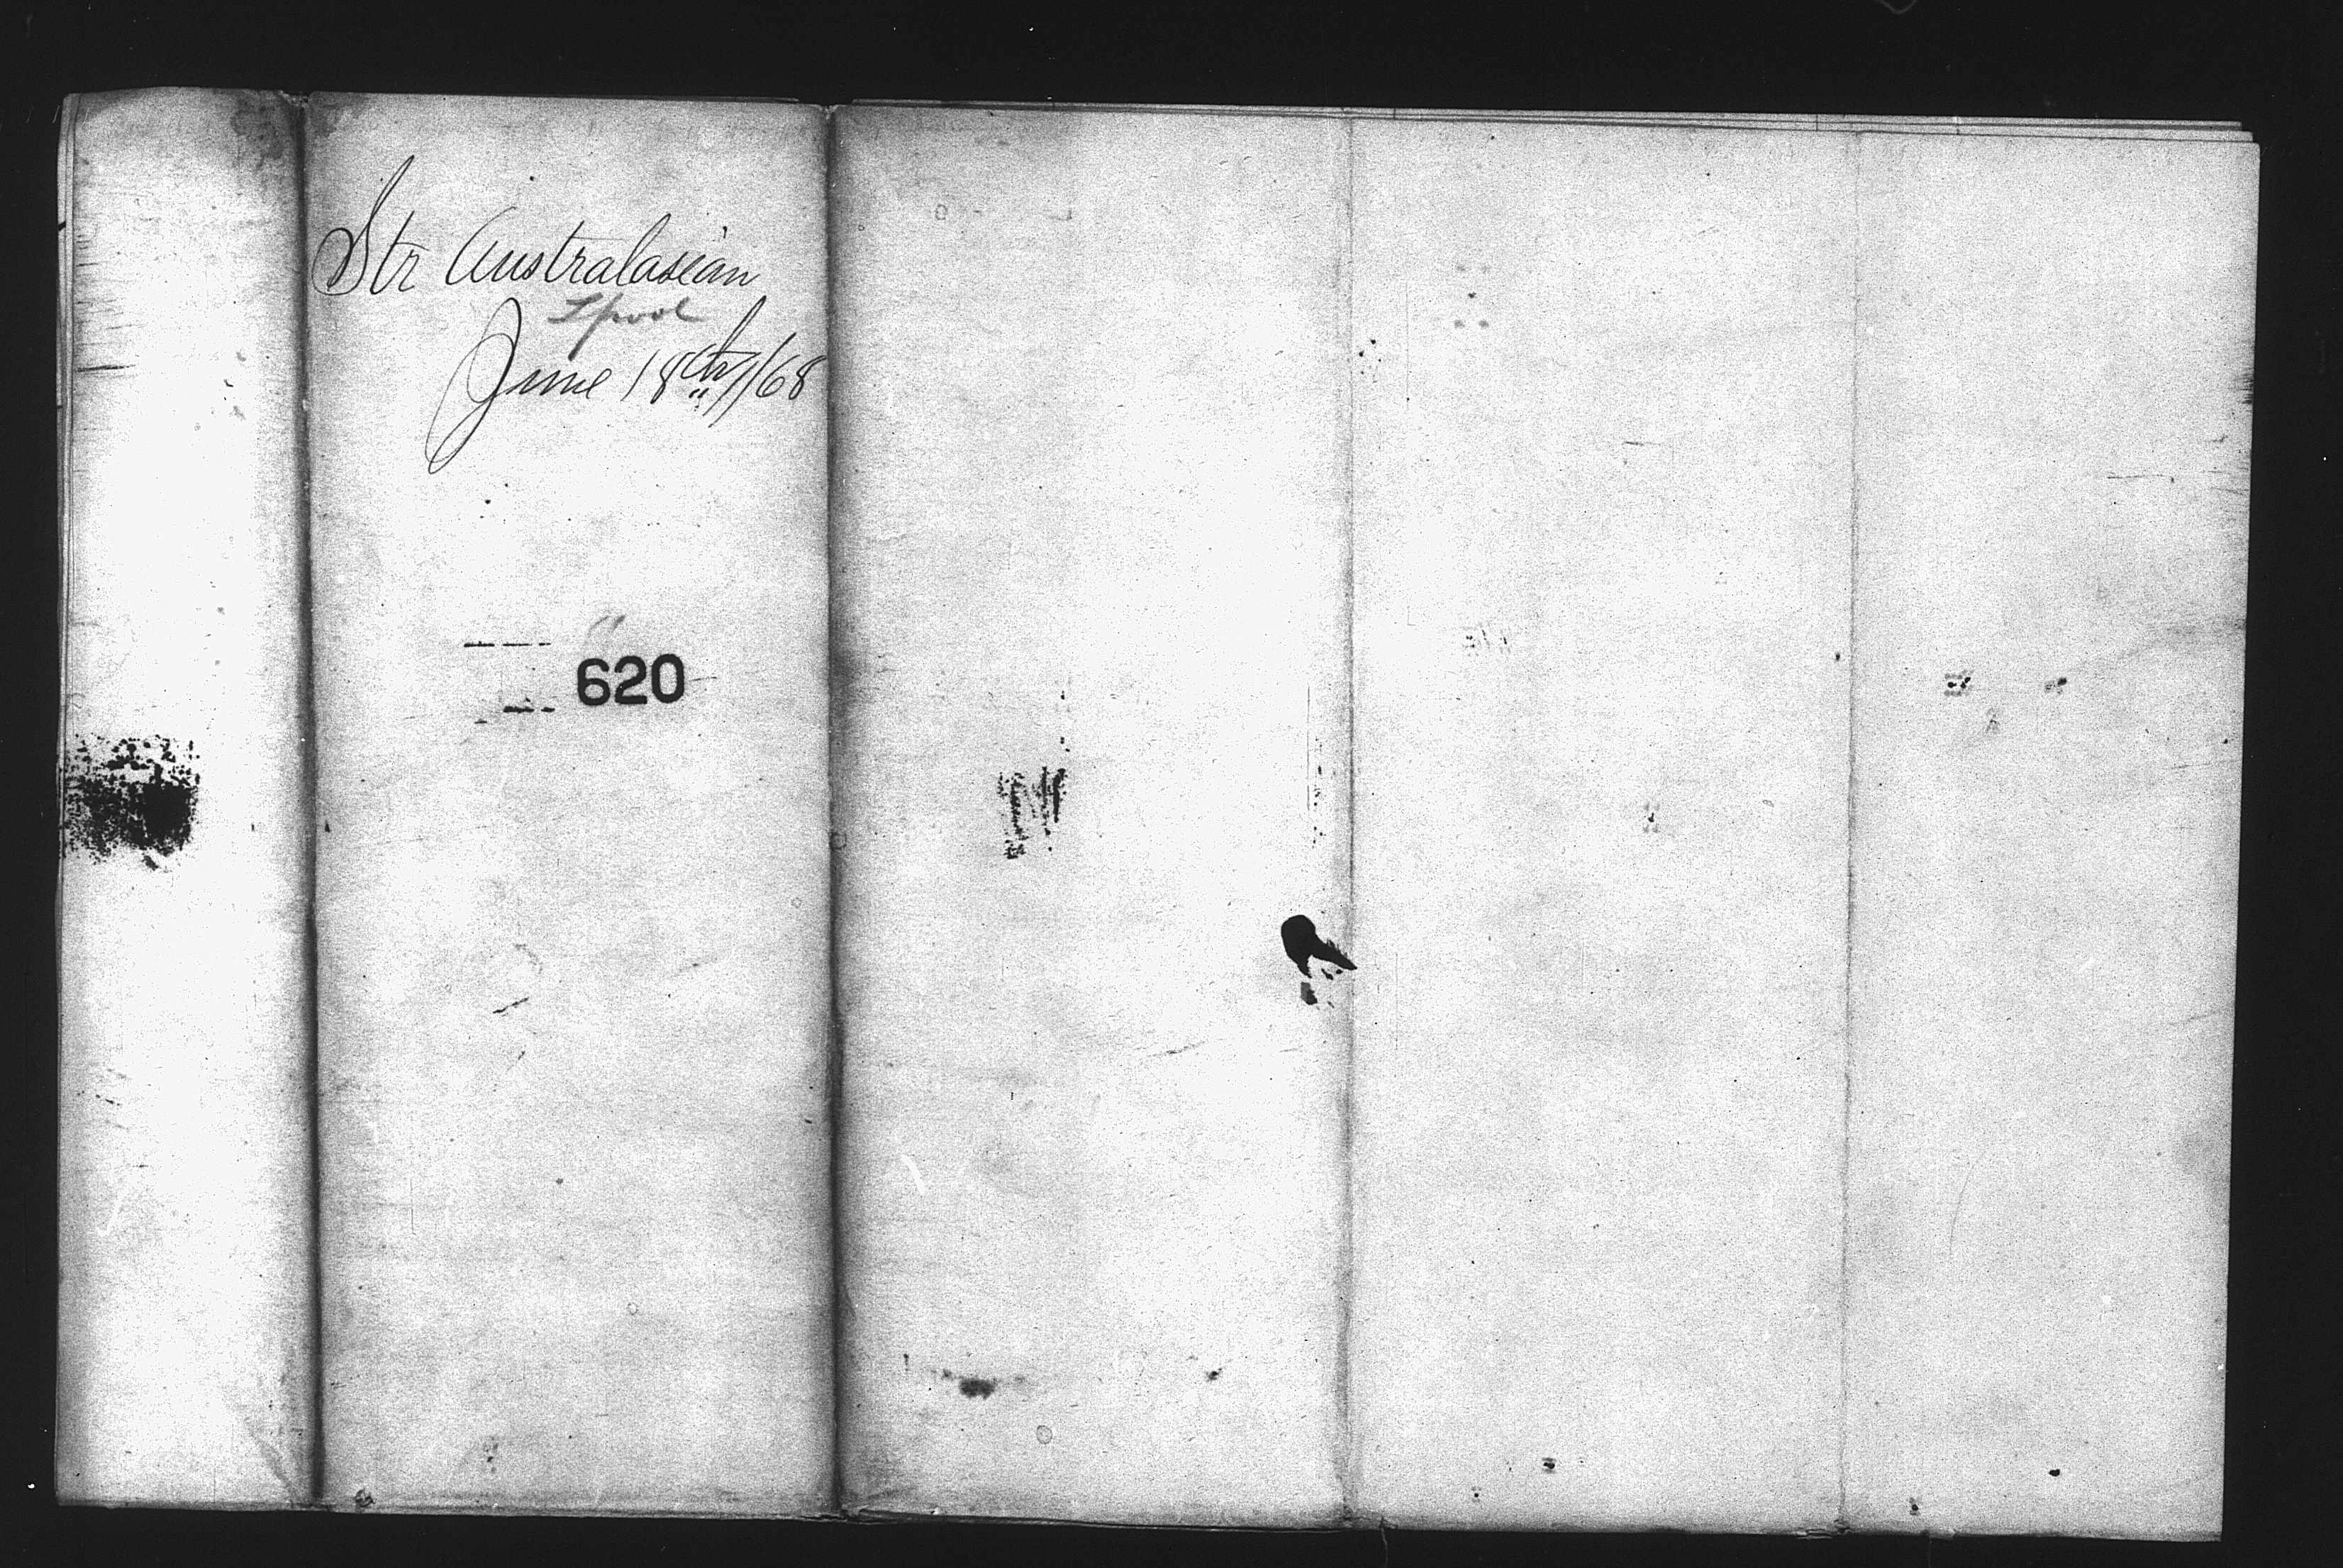 Str Australasian
Lpool
June 18th/68
620